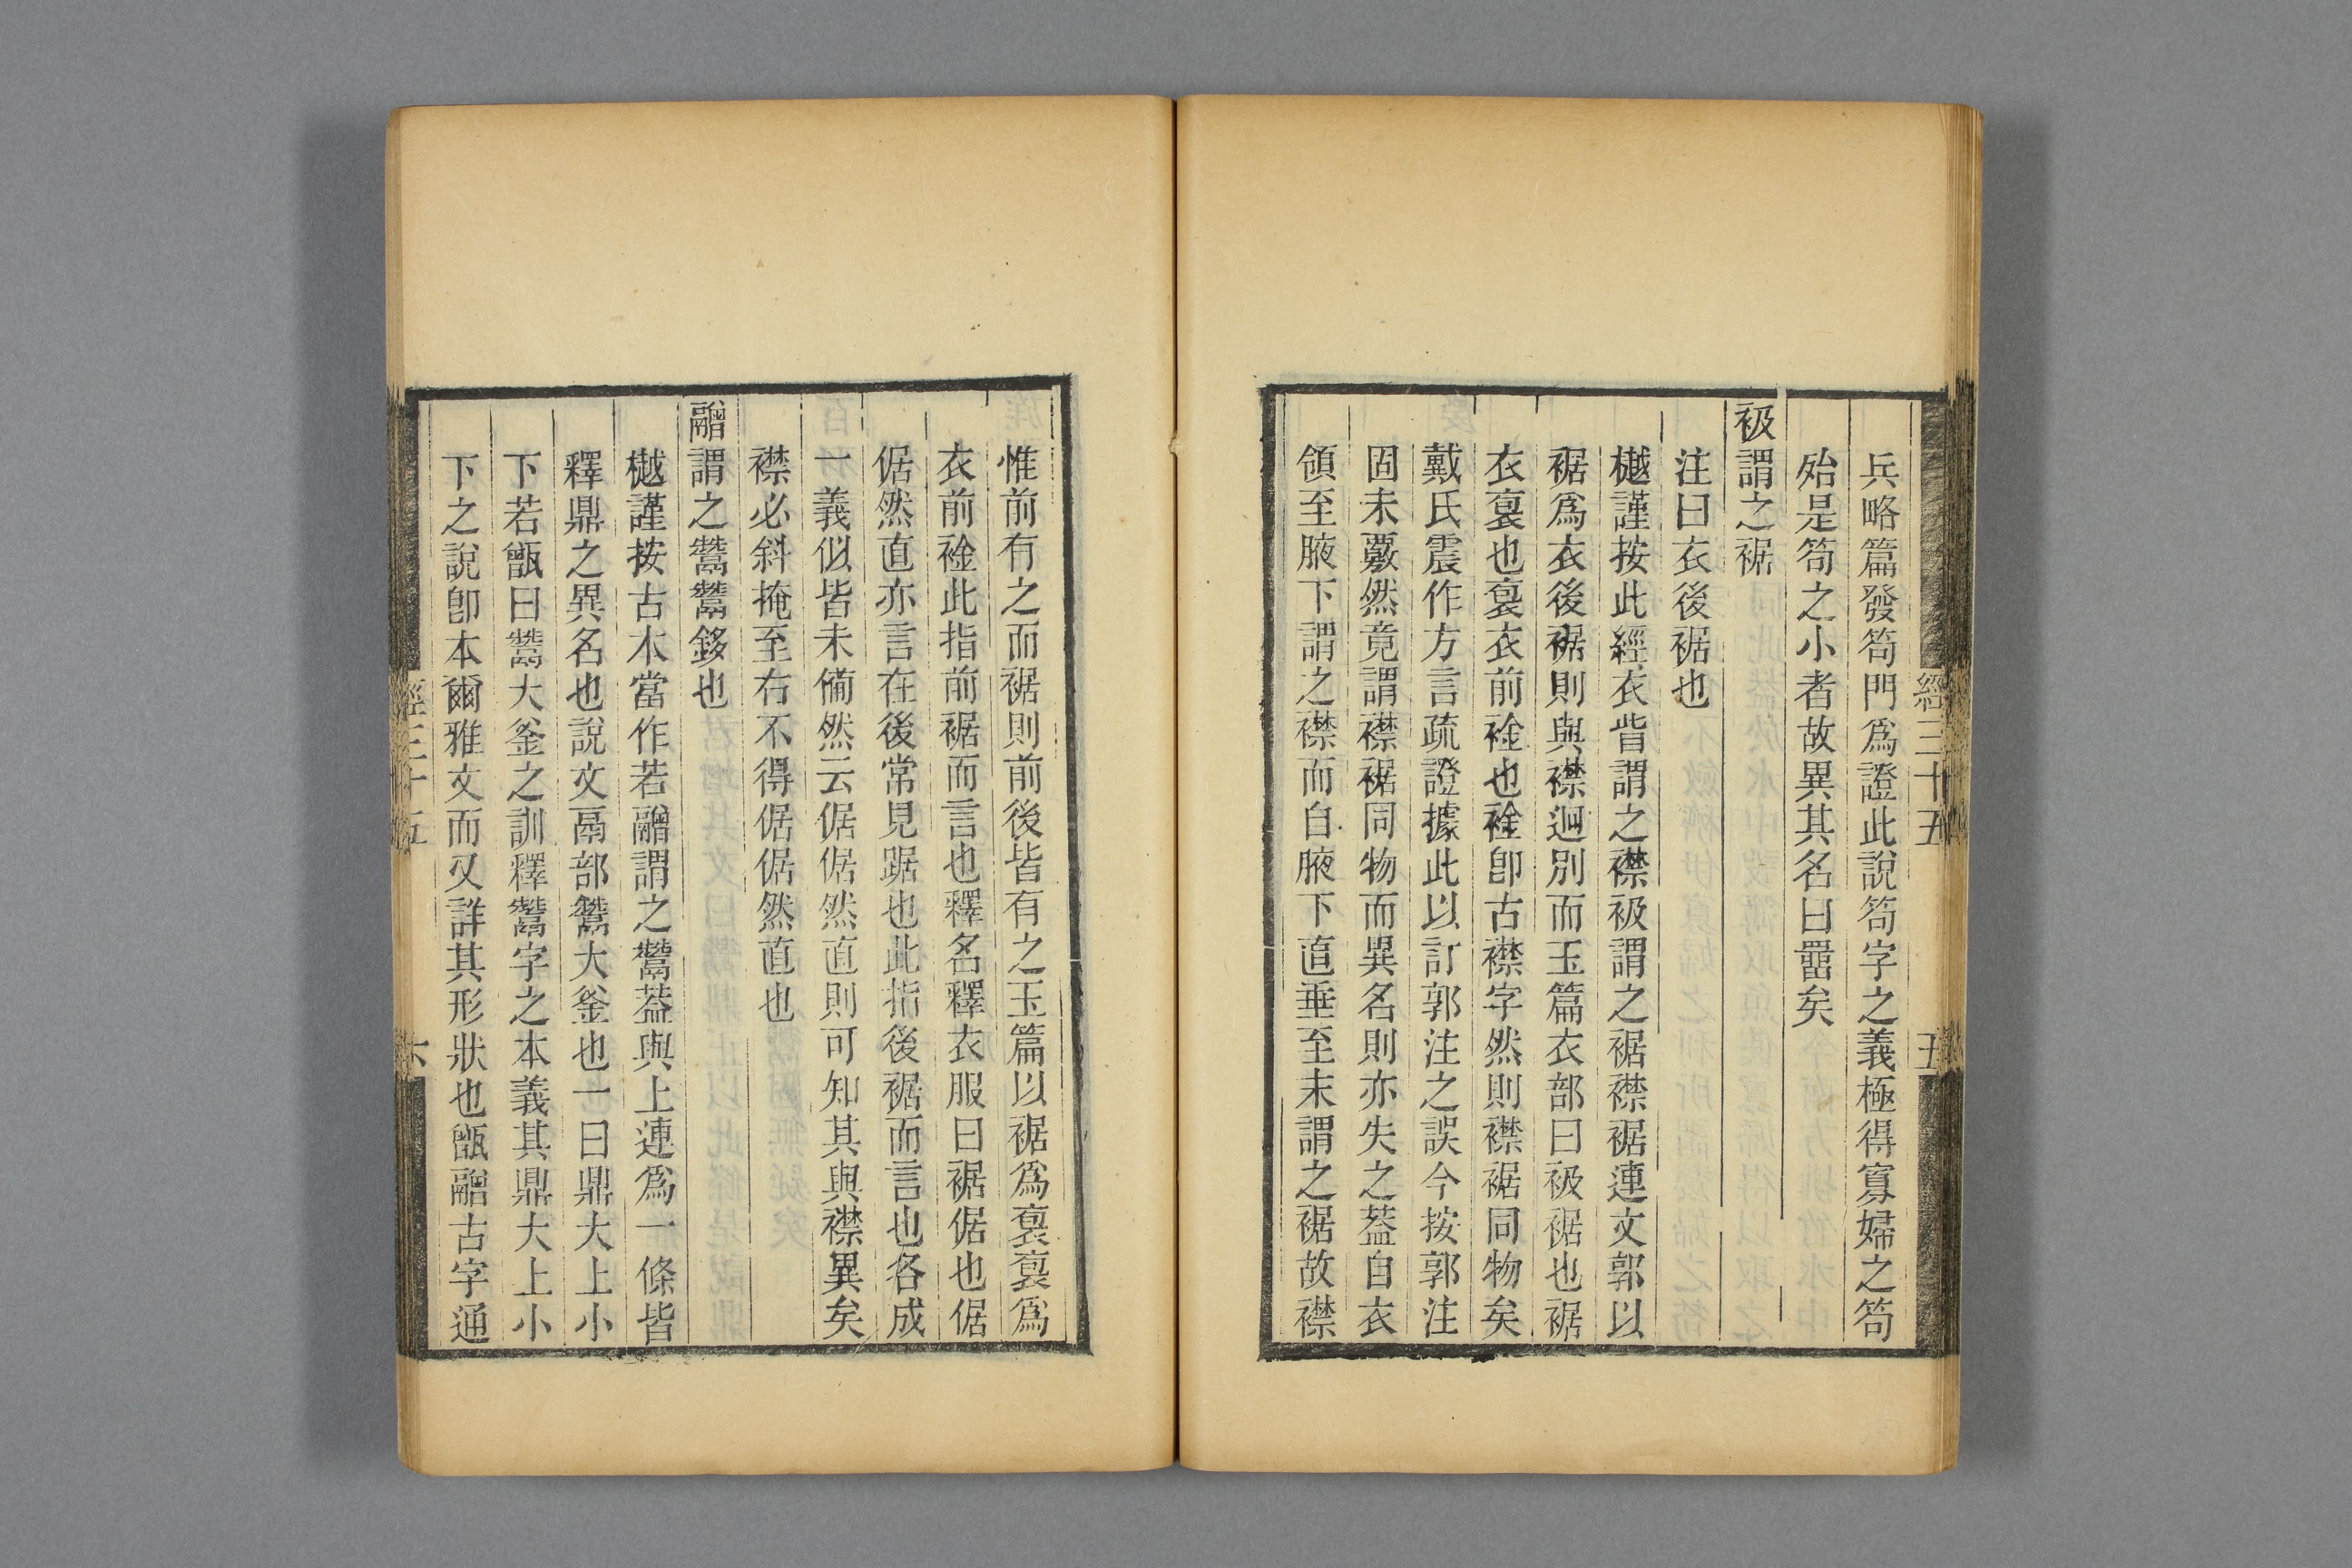 兵略篇發笱門爲證此說笱字之義極得寡婦之笱
殆是笱之小者故異其名曰罶矣
衱謂之裾
注曰衣後裾也
樾謹按此經衣眥謂之襟衱謂之裾襟裾連文郭以
裾爲衣後裾則與襟迥別而玉篇衣部曰衱裾也裾
衣裒也裒衣前襘也襘卽古襟字然則襟裾同物矣
戴氏震作方言疏證據此以訂郭注之誤今按郭注
固未覈然竟謂襟裾同物而異名則亦失之蓋自衣
領至腋下謂之襟而自腋下直垂至末謂之裾故襟
惟前有之而裾則前後皆有之玉篇以裾爲裒裒爲
衣前襘此指前裾而言也釋名釋衣服曰裾倨也倨
倨然直亦言在後常見踞也此指後裾而言也各成
一義似皆未備然云倨倨然直則可知其與襟異矣
襟必斜掩至右不得倨倨然直也
䰝謂之鬵鬵鉹也
樾謹按古本當作若䰝謂之鬵蓋與上連爲一條皆
釋鼎之異名也說文鬲部鬵大釜也一曰鼎大上小
下若甑曰鬵大釜之訓釋鬵字之本義其鼎大上小
下之說卽本爾雅文而又詳其形狀也甑䰝古字通
經三十五
五
經三十五
六